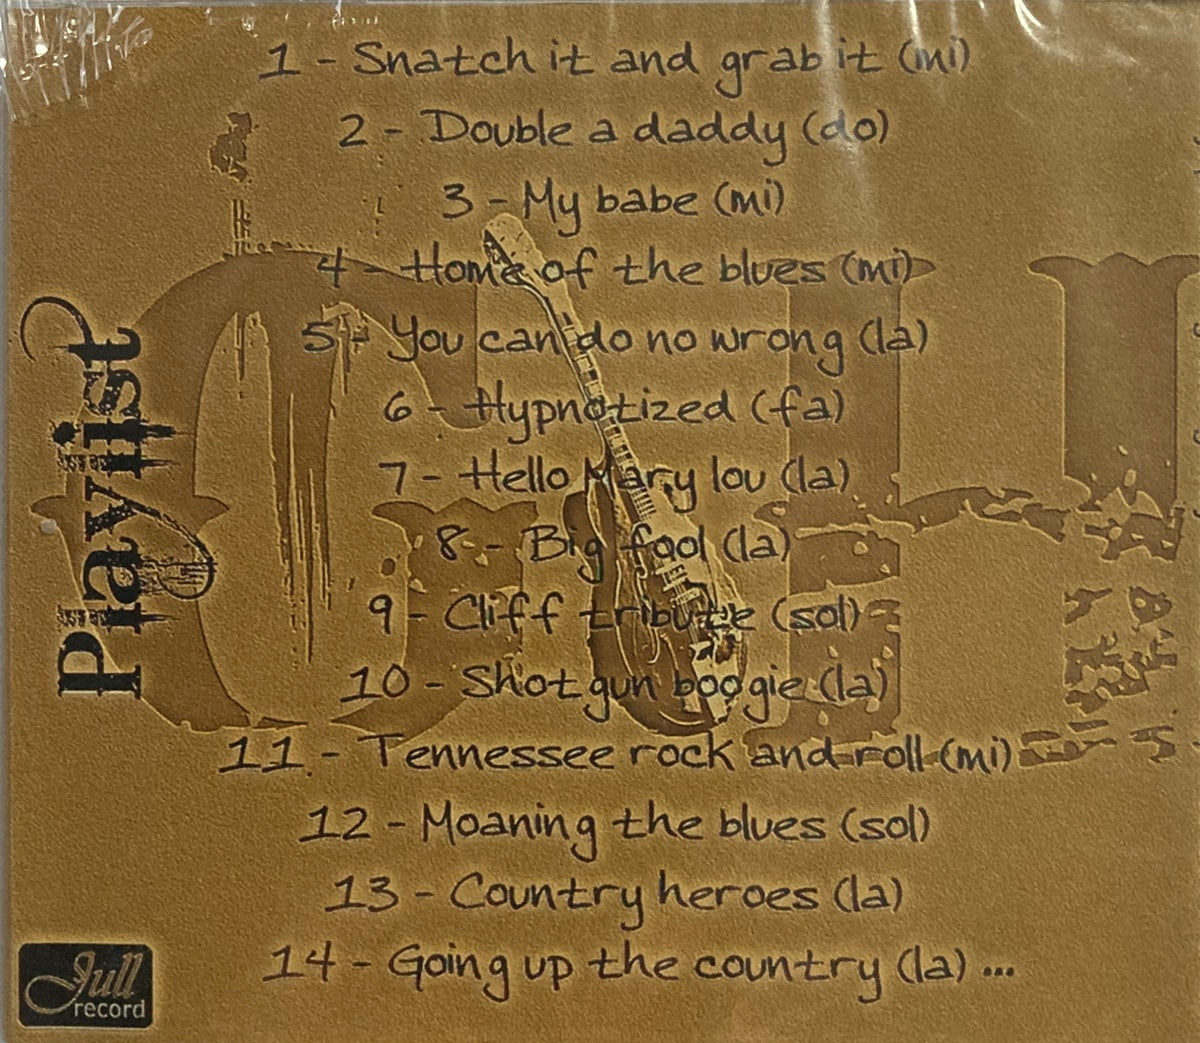 1 - Snatch it and grab it (mi)
2 - Double a daddy (do)
3 - My babe (mi)
4 - Home of the blues (mi)
5 - You can do no wrong (la)
6 - Hypnotized (fa)
7 - Hello Mary lou (la)
8 - Big fool (la)
9 - Cliff tribute (sol)
10 - Shotgun boogie (la)
11 - Tennessee rock and roll (mi)
12 - Moaning the blues (sol)
13 - Country heroes (la)
14 - Going up the country (la) ...
Playlist
Jull
record